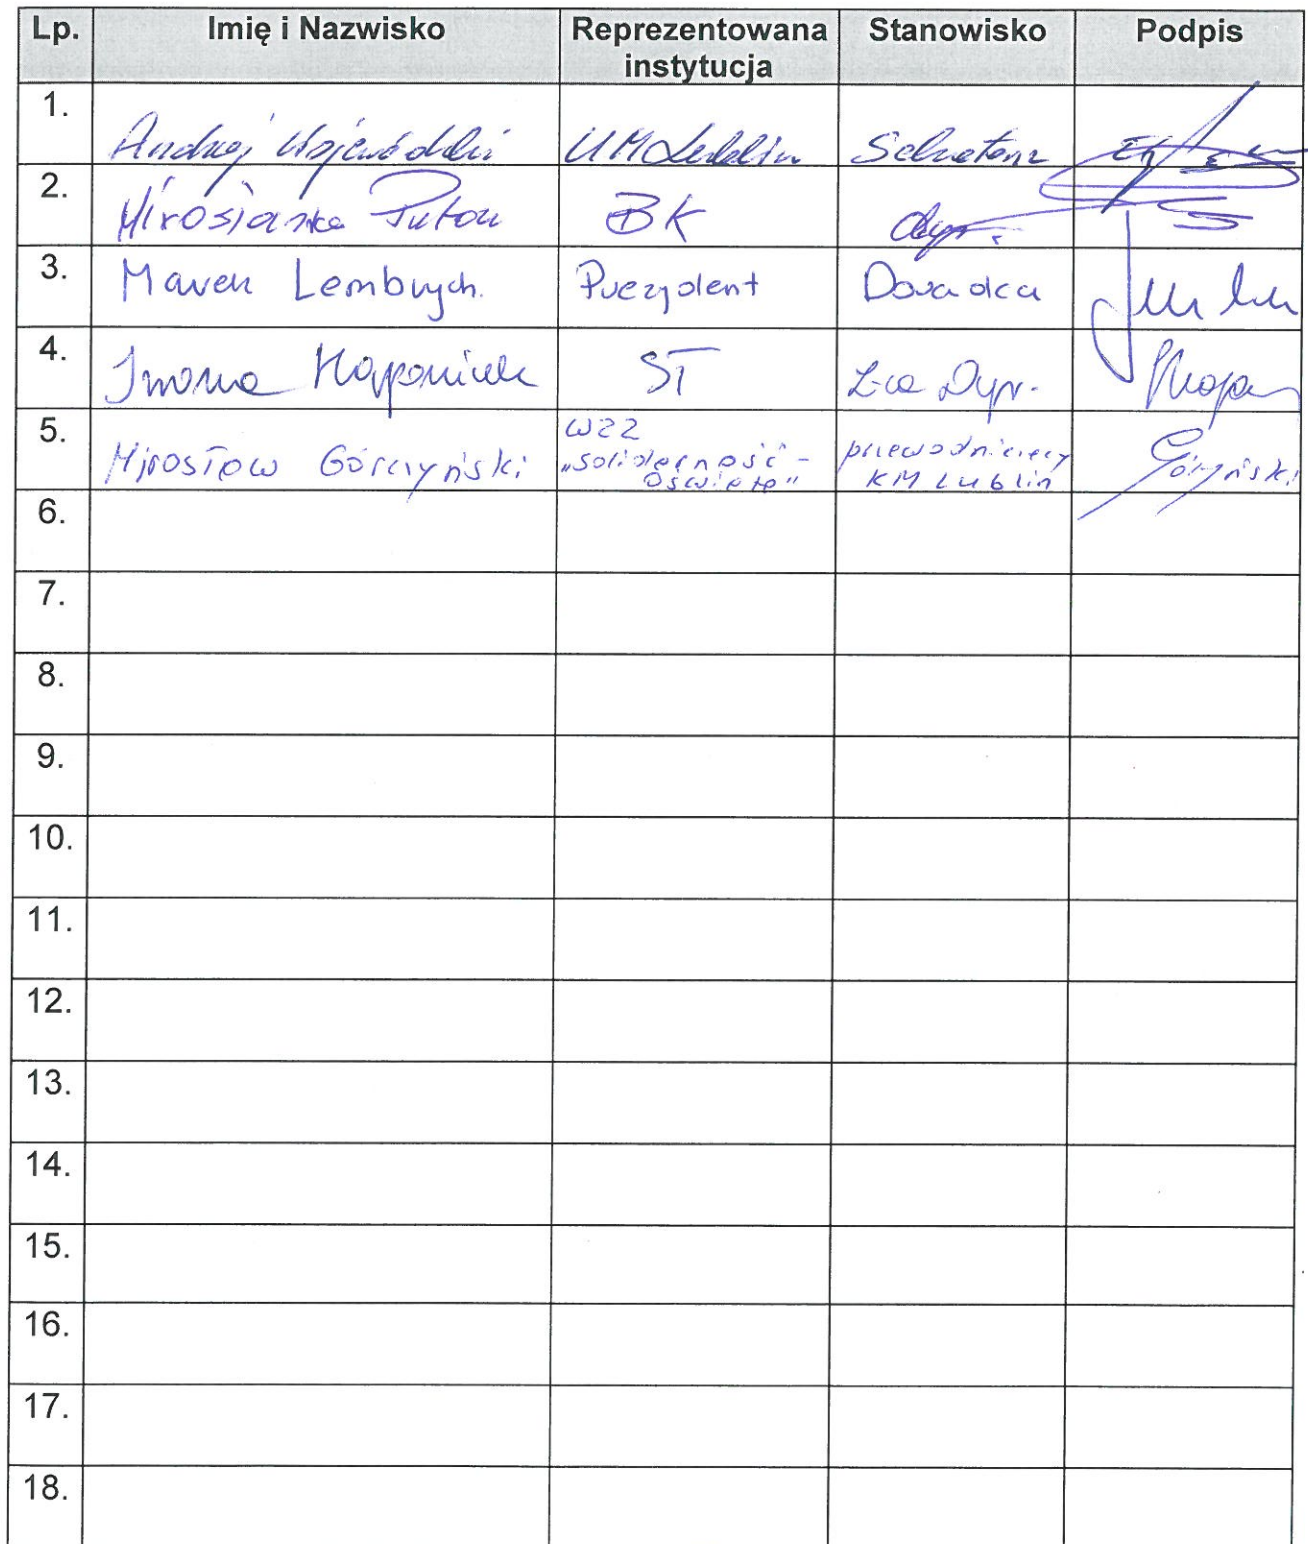 Lp. Imię i Nazwisko Reprezentowana instytucja Stanowisko Podpis
1. Andrzej Wojewódzki UM Lublin Sekretarz
2. Mirosława Puton BK dyr.
3. Marek Lembrych. Prezydent Doradca
4. Iwona Haponiuk ST Z-ca Dyr.
5. Mirosław Górczyński WZZ „Solidarność - Oświata" przewodniczący KM Lublin Górzyński
6.
7.
8.
9.
10.
11.
12.
13.
14.
15.
16.
17.
18.